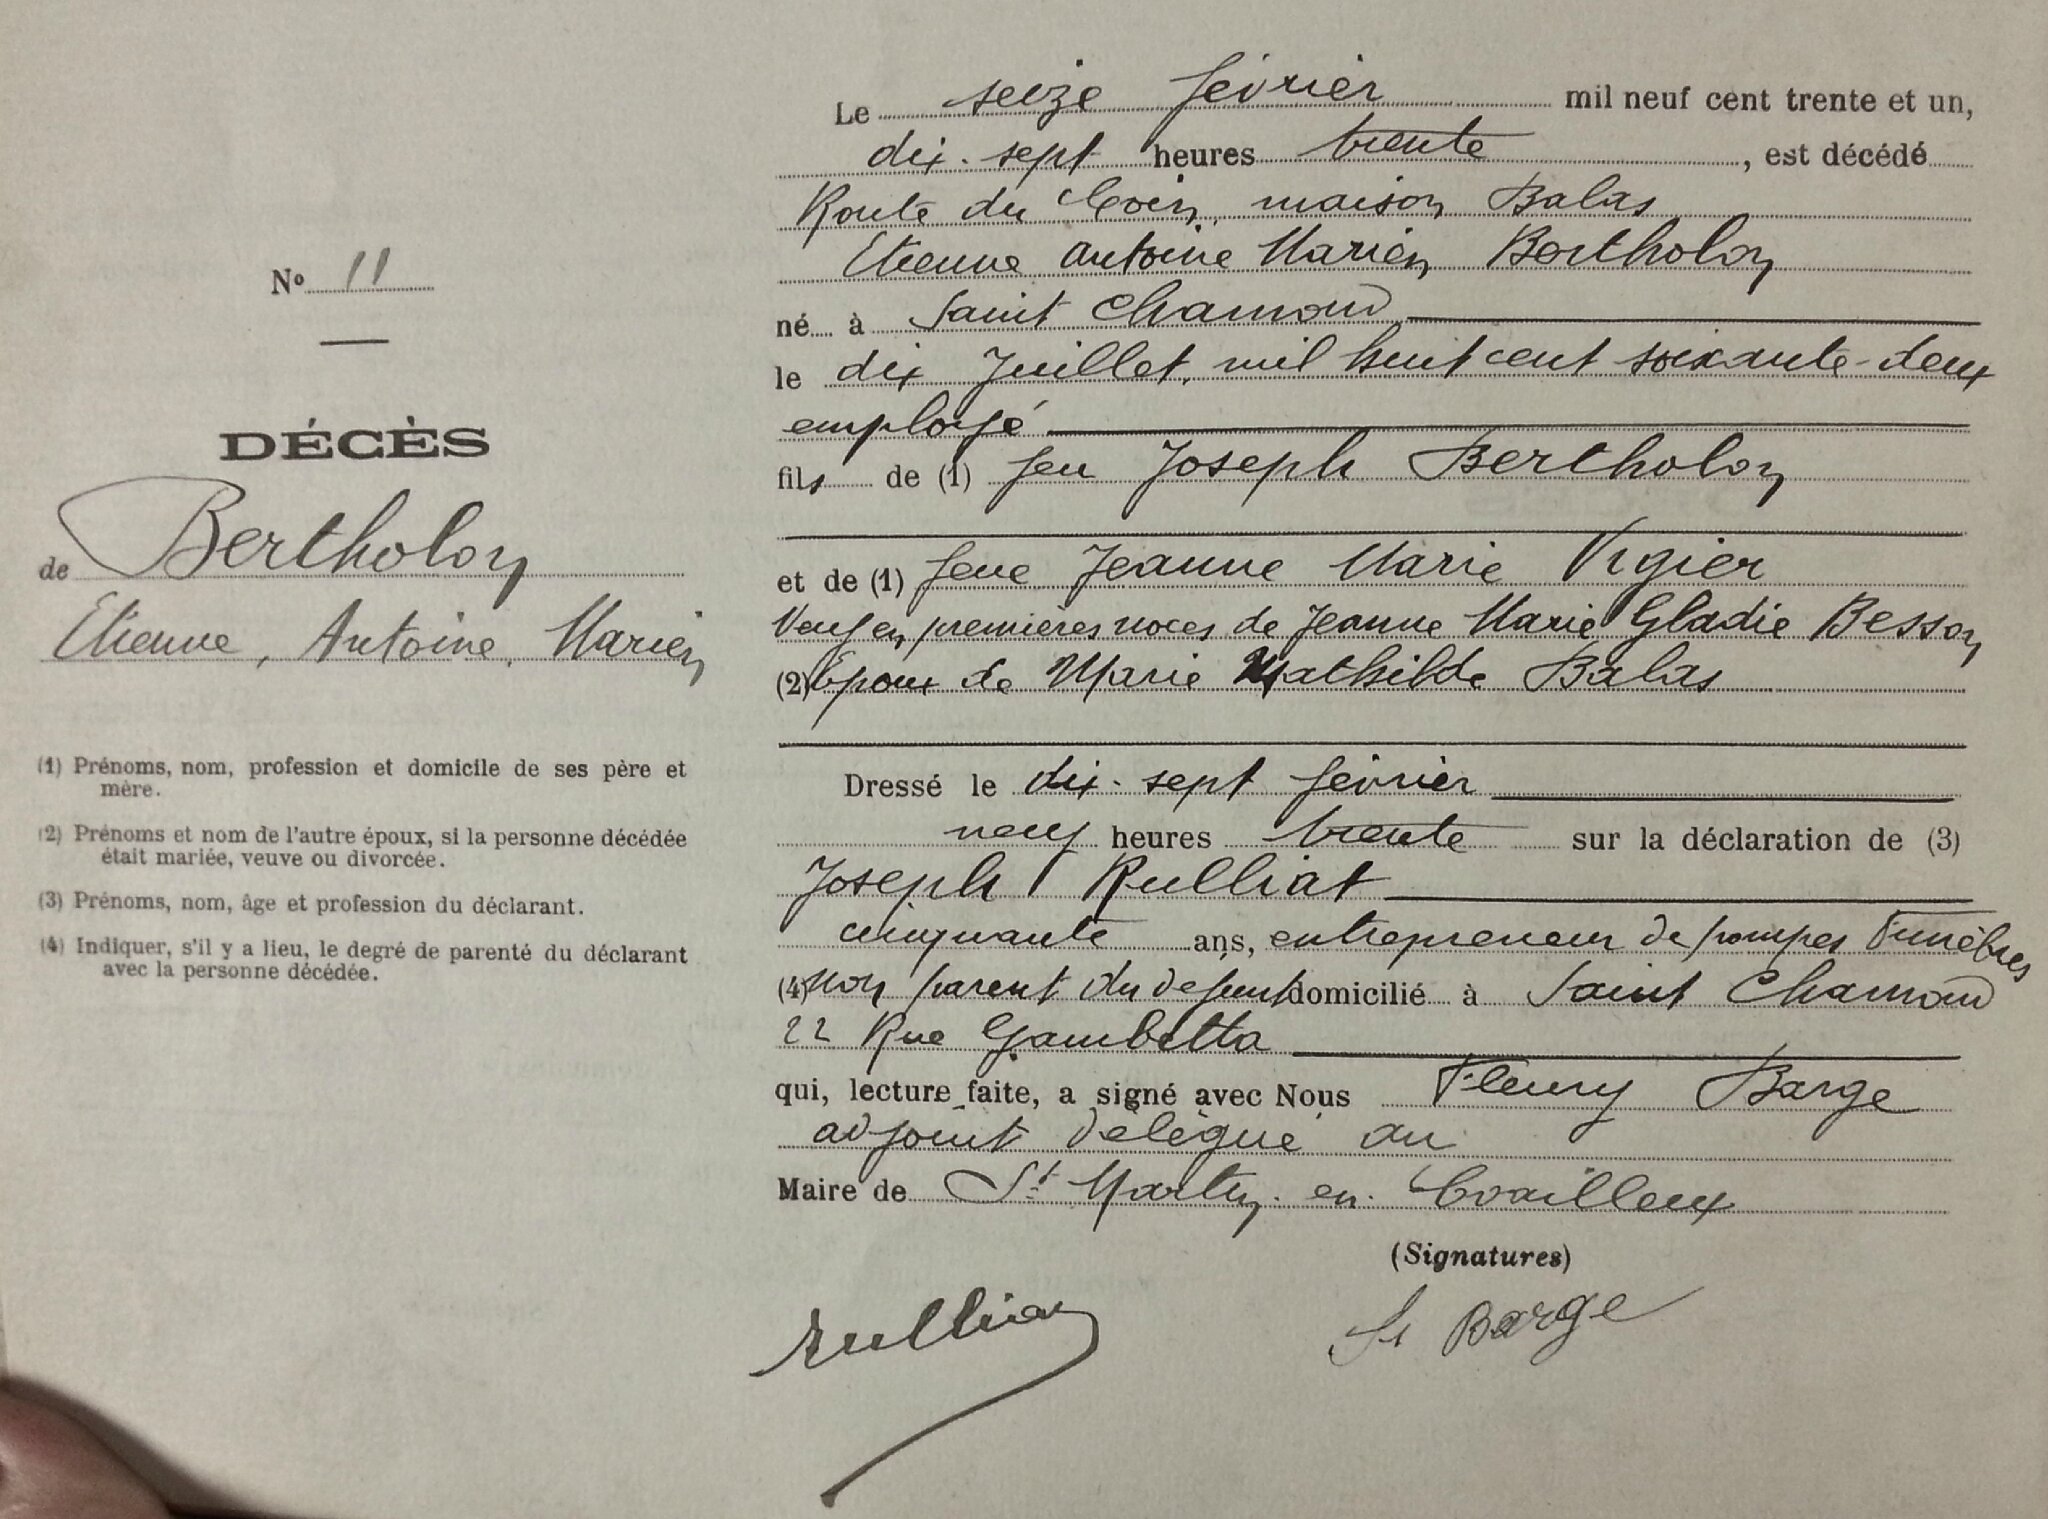 N° 11
DÉCÈS
de Bertholon
Etienne, Antoine, Marien
(1) Prénoms, nom, profession et domicile de ses père et
mère.
(2) Prénoms et nom de l'autre époux, si la personne décédée
était mariée, veuve ou divorcée.
(3) Prénoms, nom, âge et profession du déclarant.
(4) Indiquer, s'il y a lieu, le degré de parenté du déclarant
avec la personne décédée.
Le seize février mil neuf cent trente et un,
dix-sept heures trente, est décédé
Route du Coin, maison Balas
Etienne Antoine Marien Bertholon
né à Saint Chamond
le dix Juillet, mil huit cent soixante-deux
employé
fils de (1) feu Joseph Bertholon
et de (1) feue Jeanne Marie Vigier
Veuf en premières noces de Jeanne Marie Gladie Besson
(2) Epoux de Marie Mathilde Balas
Dressé le dix-sept février
neuf heures trente sur la déclaration de (3)
Joseph Rulliat
cinquante ans, entrepreneur de pompes Funèbres
(4) non parent du defunt domicilié à Saint Chamond
22 Rue Gambetta
qui, lecture faite, a signé avec Nous Fleury Barge
adjoint délégué au
Maire de St Martin-en-Coailleux
(Signatures)
Rulliat fs Barge